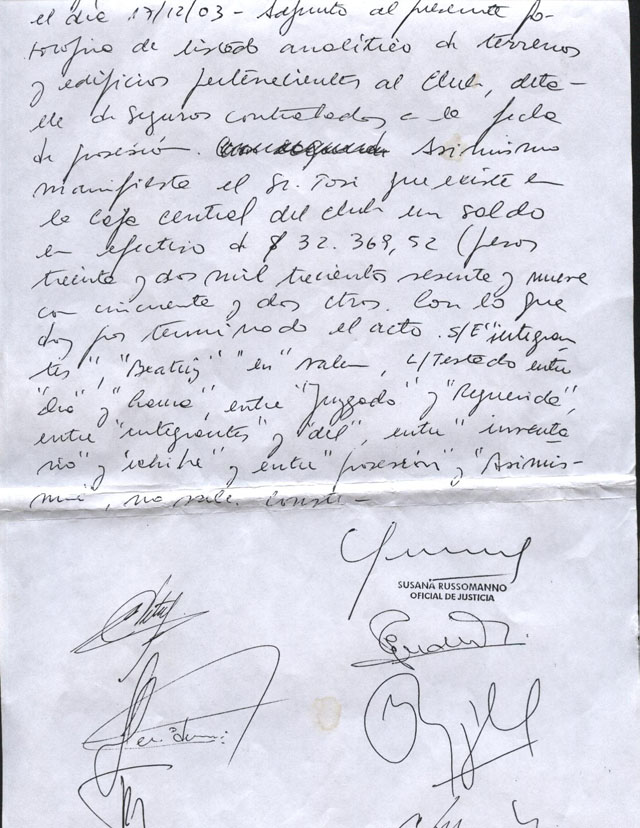 el día 17/12/03 - Adjunto al presente fo-
tocopia de listado analítico de terrenos
y edificios pertenecientes al Club, deta-
lle de seguros contratados a la fecha
de posesión. Asimismo
manifiesta el Sr. Tosi que existe en
la caja central del club un saldo
en efectivo de $ 32.369,52 (pesos
treinta y dos mil trecientos sesenta y nueve
con cincuenta y dos ctvos. Con lo que
doy por terminado el acto. S/E "integran
tes", "Beatriz" "en" valen, L/Testado entre
"dia" y "hama", entre "Juzgado" y "Requerida",
entre "integrantes" y "del", entre "inventa
rio" y "exhibe" y entre "posesión" y "Asimis-
mo", no vale. Conste-
SUSANA RUSSOMANNO
OFICIAL DE JUSTICIA